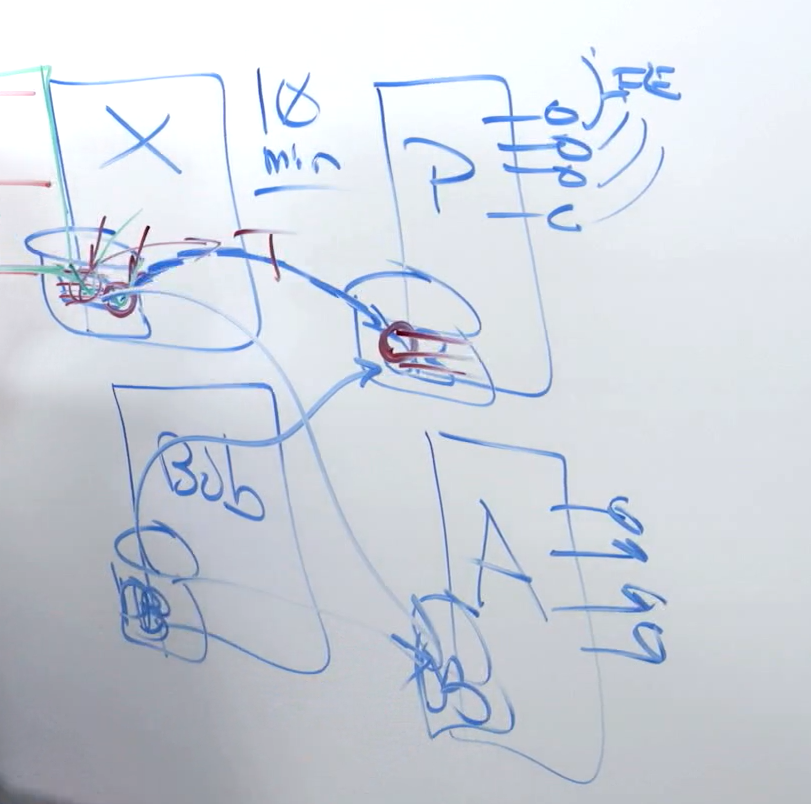 X
10
min
P
FE
T
Bob
A